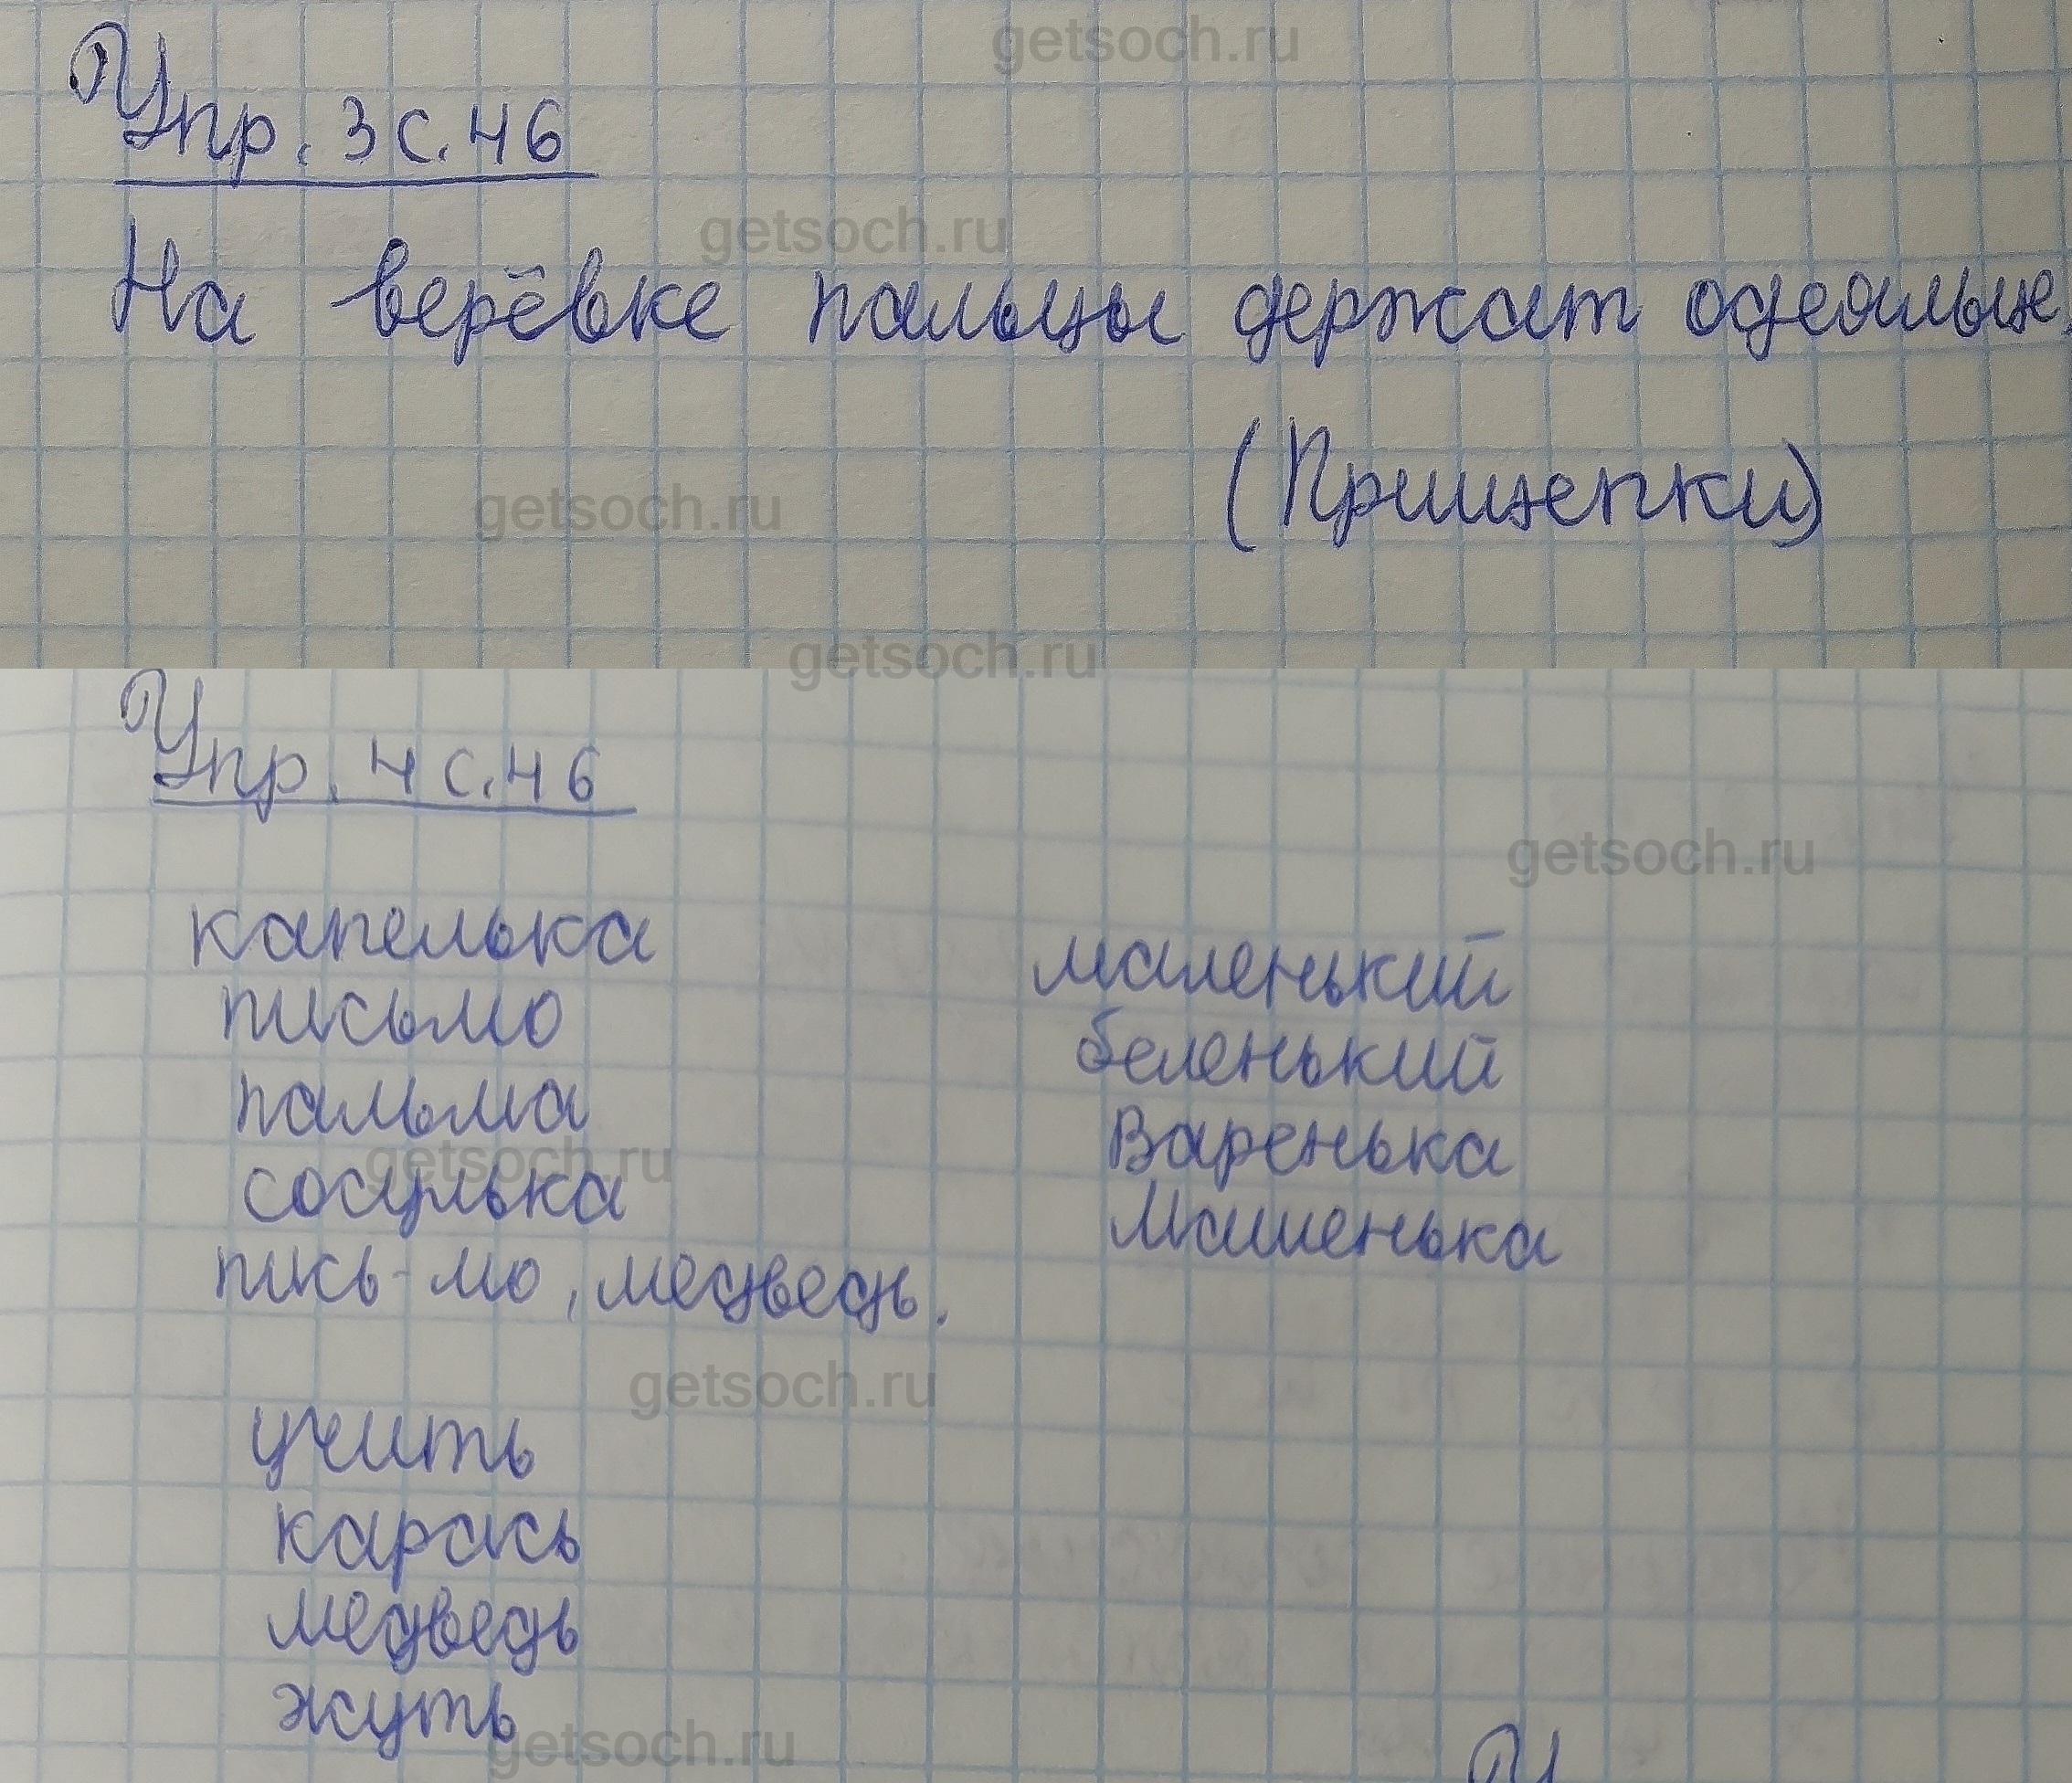 getsoch.ru
Упр. 3 с. 46
getsoch.ru
На верёвке пальцы держат одеяльце.
(Прищепки)
getsoch.ru
getsoch.ru
Упр. 4 с. 46
getsoch.ru
капелька
маленький
письмо
беленький
пальма
Варенька
getsoch.ru
сосулька
Машенька
пись-мо, медведь.
getsoch.ru
учить
карась
медведь
жуть
getsoch.ru
У